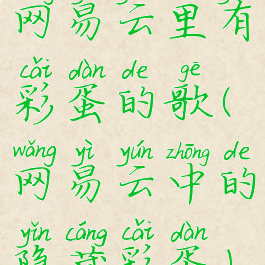 网易云里有
cǎi dàn de gē
彩蛋的歌(
wǎng yì yún zhōng de
网易云中的
yǐn cáng cǎi dàn
隐藏彩蛋)